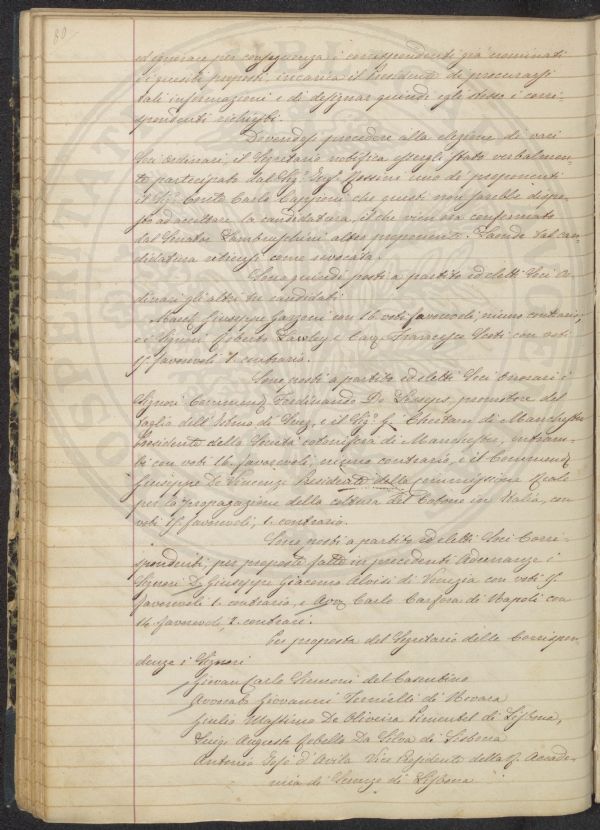 80
ed ignorare per conseguenza i corrispondenti già nominati
e i questi proposti, incarica il Presidente di procurarsi
tali informazioni e di designar quindi egli stesso i corri-
spondenti richiesti.
Dovendosi procedere alla elezione di vari
Soci ordinari, il Segretario notifica essergli stato verbalmen-
te partecipato dal Sig.r Ing.e uno dei proponenti
il Sig.r Conte Carlo Capponi che questi non sarebbe dispo-
sto ad accettare la candidatura, il che vien ora confermato
dal Senator Lambruschini altro proponente. Laonde tal can-
didatura ritiensi come revocata.
Sono quindi posti a partito ed eletti Soci or-
dinari gli altri tre candidati
March. Giuseppe Garzoni con 16 voti favorevoli, niuno contrario,
e i Signori Roberto Lawley e Cav. Francesco Sesti con voti
15 favorevoli 1 contrario.
Sono posti a partito ed eletti Soci Onorari i
Signori Commend. Ferdinando De Lesseps, promotore del
taglio dell'Istmo di Suez, e il Sig.r di Manchester
Presidente della Società cotonificia di Manchester, entram-
bi con voti 16 favorevoli, niuno contrario, e il Commend.
Giuseppe De Vincenzi Presidente della Commissione Reale
per la propagazione della coltura del Cotone in Italia, con
voti 15 favorevoli, 1 contrario.
Sono posti a partito ed eletti Soci Corri-
spondenti, per proposte fatte in precedenti Adunanze i
Signori D. Giuseppe Giacomo Aloisi di Venezia con voti 15
favorevoli 1 contrario, e Avv. Carlo Carfora di Napoli con
14 favorevoli, 2 contrari.
Per proposta del Segretario delle Corrispon-
denze i Signori
Giovan Carlo Siemoni del Casentino
Avvocato Giovanni Ternielli di Novara
Giulio Massimo De Oliveira Pimentel di Lisbona,
Luigi Augusto Rebello Da Silva di Lisbona
Antonio Josè d'Avila Vice Presidente della R. Accade-
mia di Scienze di Lisbona